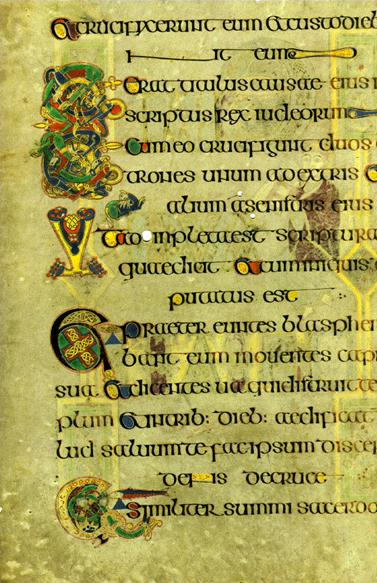 & crucifixerunt eum & custodieb
it eum
Erat titulus causae eius
scriptus rex iudeorum
Cum eo crucifigunt duos
trones unum adextris
alium asinistris eius
Et adinpleta est scriptura
quaedicit & cum iniquis
putatus est
Et praeter euntes blasphe
bant eum mouentes capi
sua & dicentes
plum & intrib: dieb: aedificat
saluum te fac ipsum disce
dens decruce
Et similiter summi sacerdo